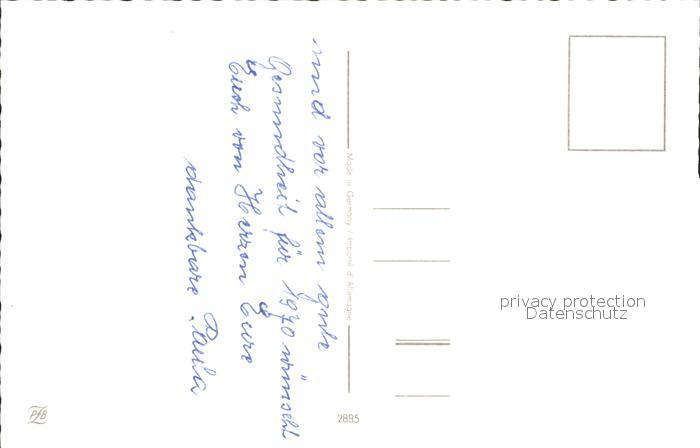 und vor allem gute
Gesundheit für 1970 wünscht
es
Euch von Herzen Eure
dankbare Paula
Made in Germany / Importé d'Allemagne
2885
PfB
privacy protection
Datenschutz